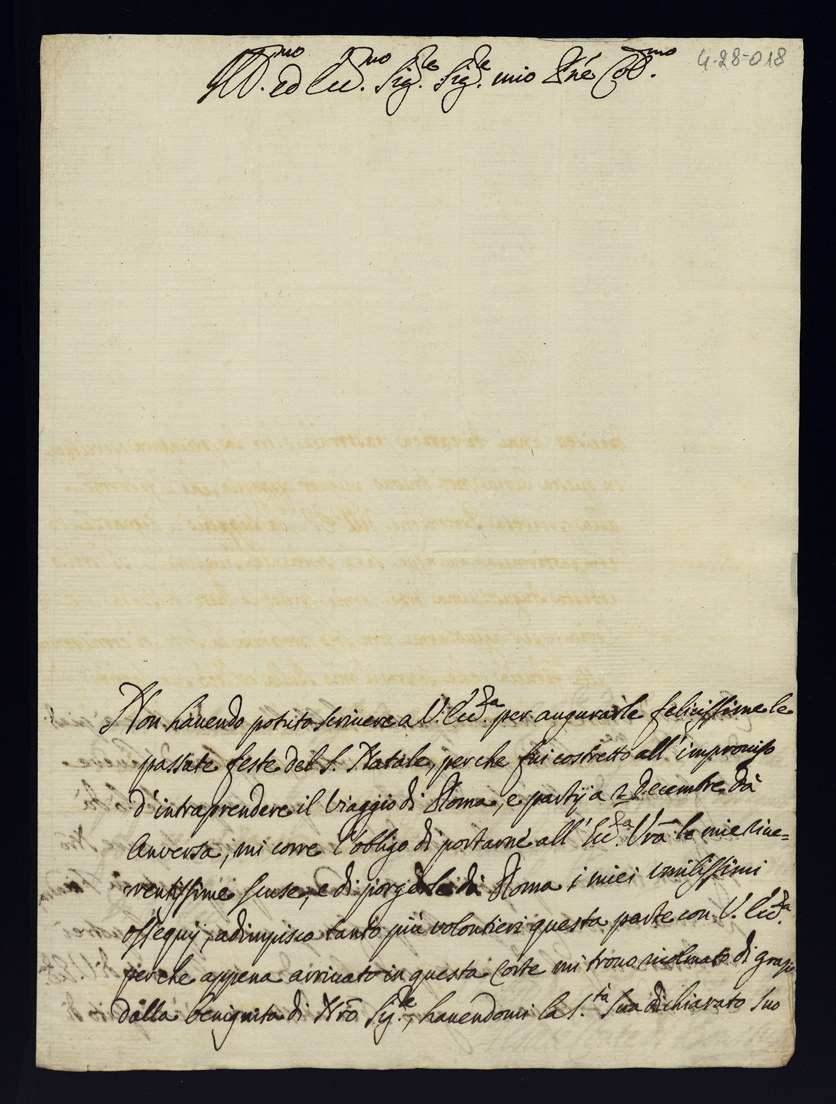 Ill.mo ed Ecc.mo Sig.re Sig.re mio P̃ne Col.mo
4-28-018
Non hauendo potuto scriuere a V. Ecc.za per augurarle felicissime le
passate feste del S. Natale, perche fui costretto all'improuiso
d'intraprendere il Viaggio di Roma, e partij a 2 Decembre da
Anversa, mi corre l'obligo di portarne all'Ecc.za Vr̃a le mie riue=
rentissime scuse, e di porgerle di Roma i miei umilissimi
ossequj, adimpisco tanto più volontieri questa parte con V. Ecc.za
perche appena arriuato in questa Corte mi trouo ricolmato di grazie
dalla benignità di Nr̃o Sig.re, hauendomi la S.tà Sua dichiarato suo